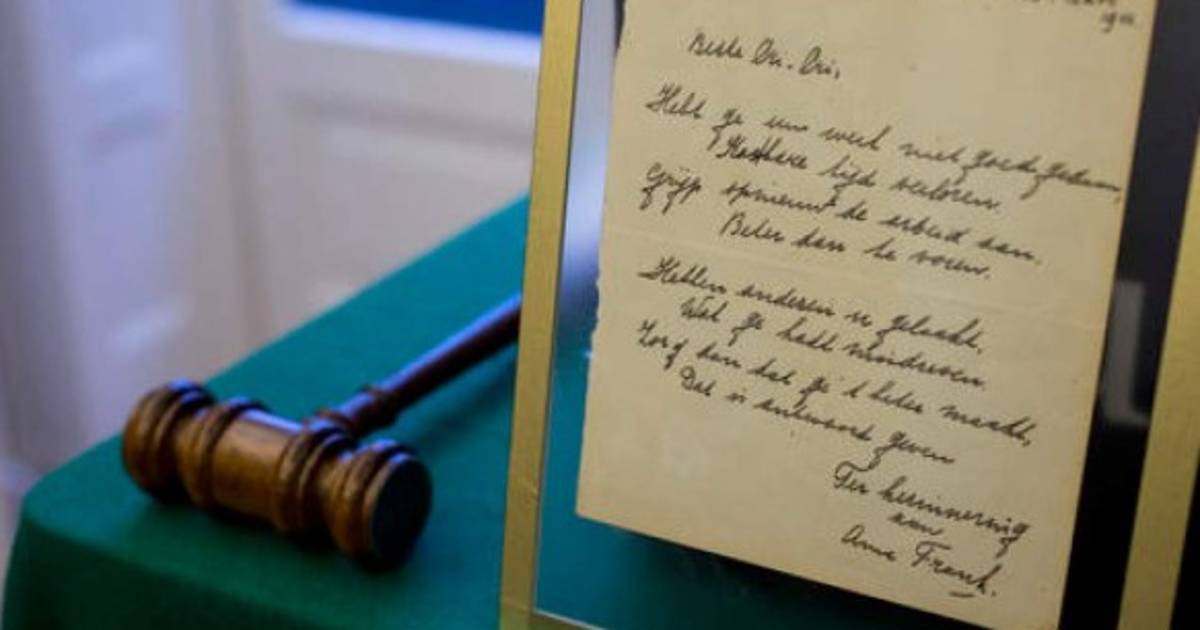 Beste Cri-Cri,
Hebt ge uw werk niet goed gedaan,
Kostbare tijd verloren.
Grijp opnieuw de arbeid aan.
Beter dan te voren.
Hebben anderen u gelaakt,
Wat ge hadt misdreven.
Zorg dan dat ge 't beter maakt,
Dat is antwoord geven
Ter herinnering
aan
Anne Frank.